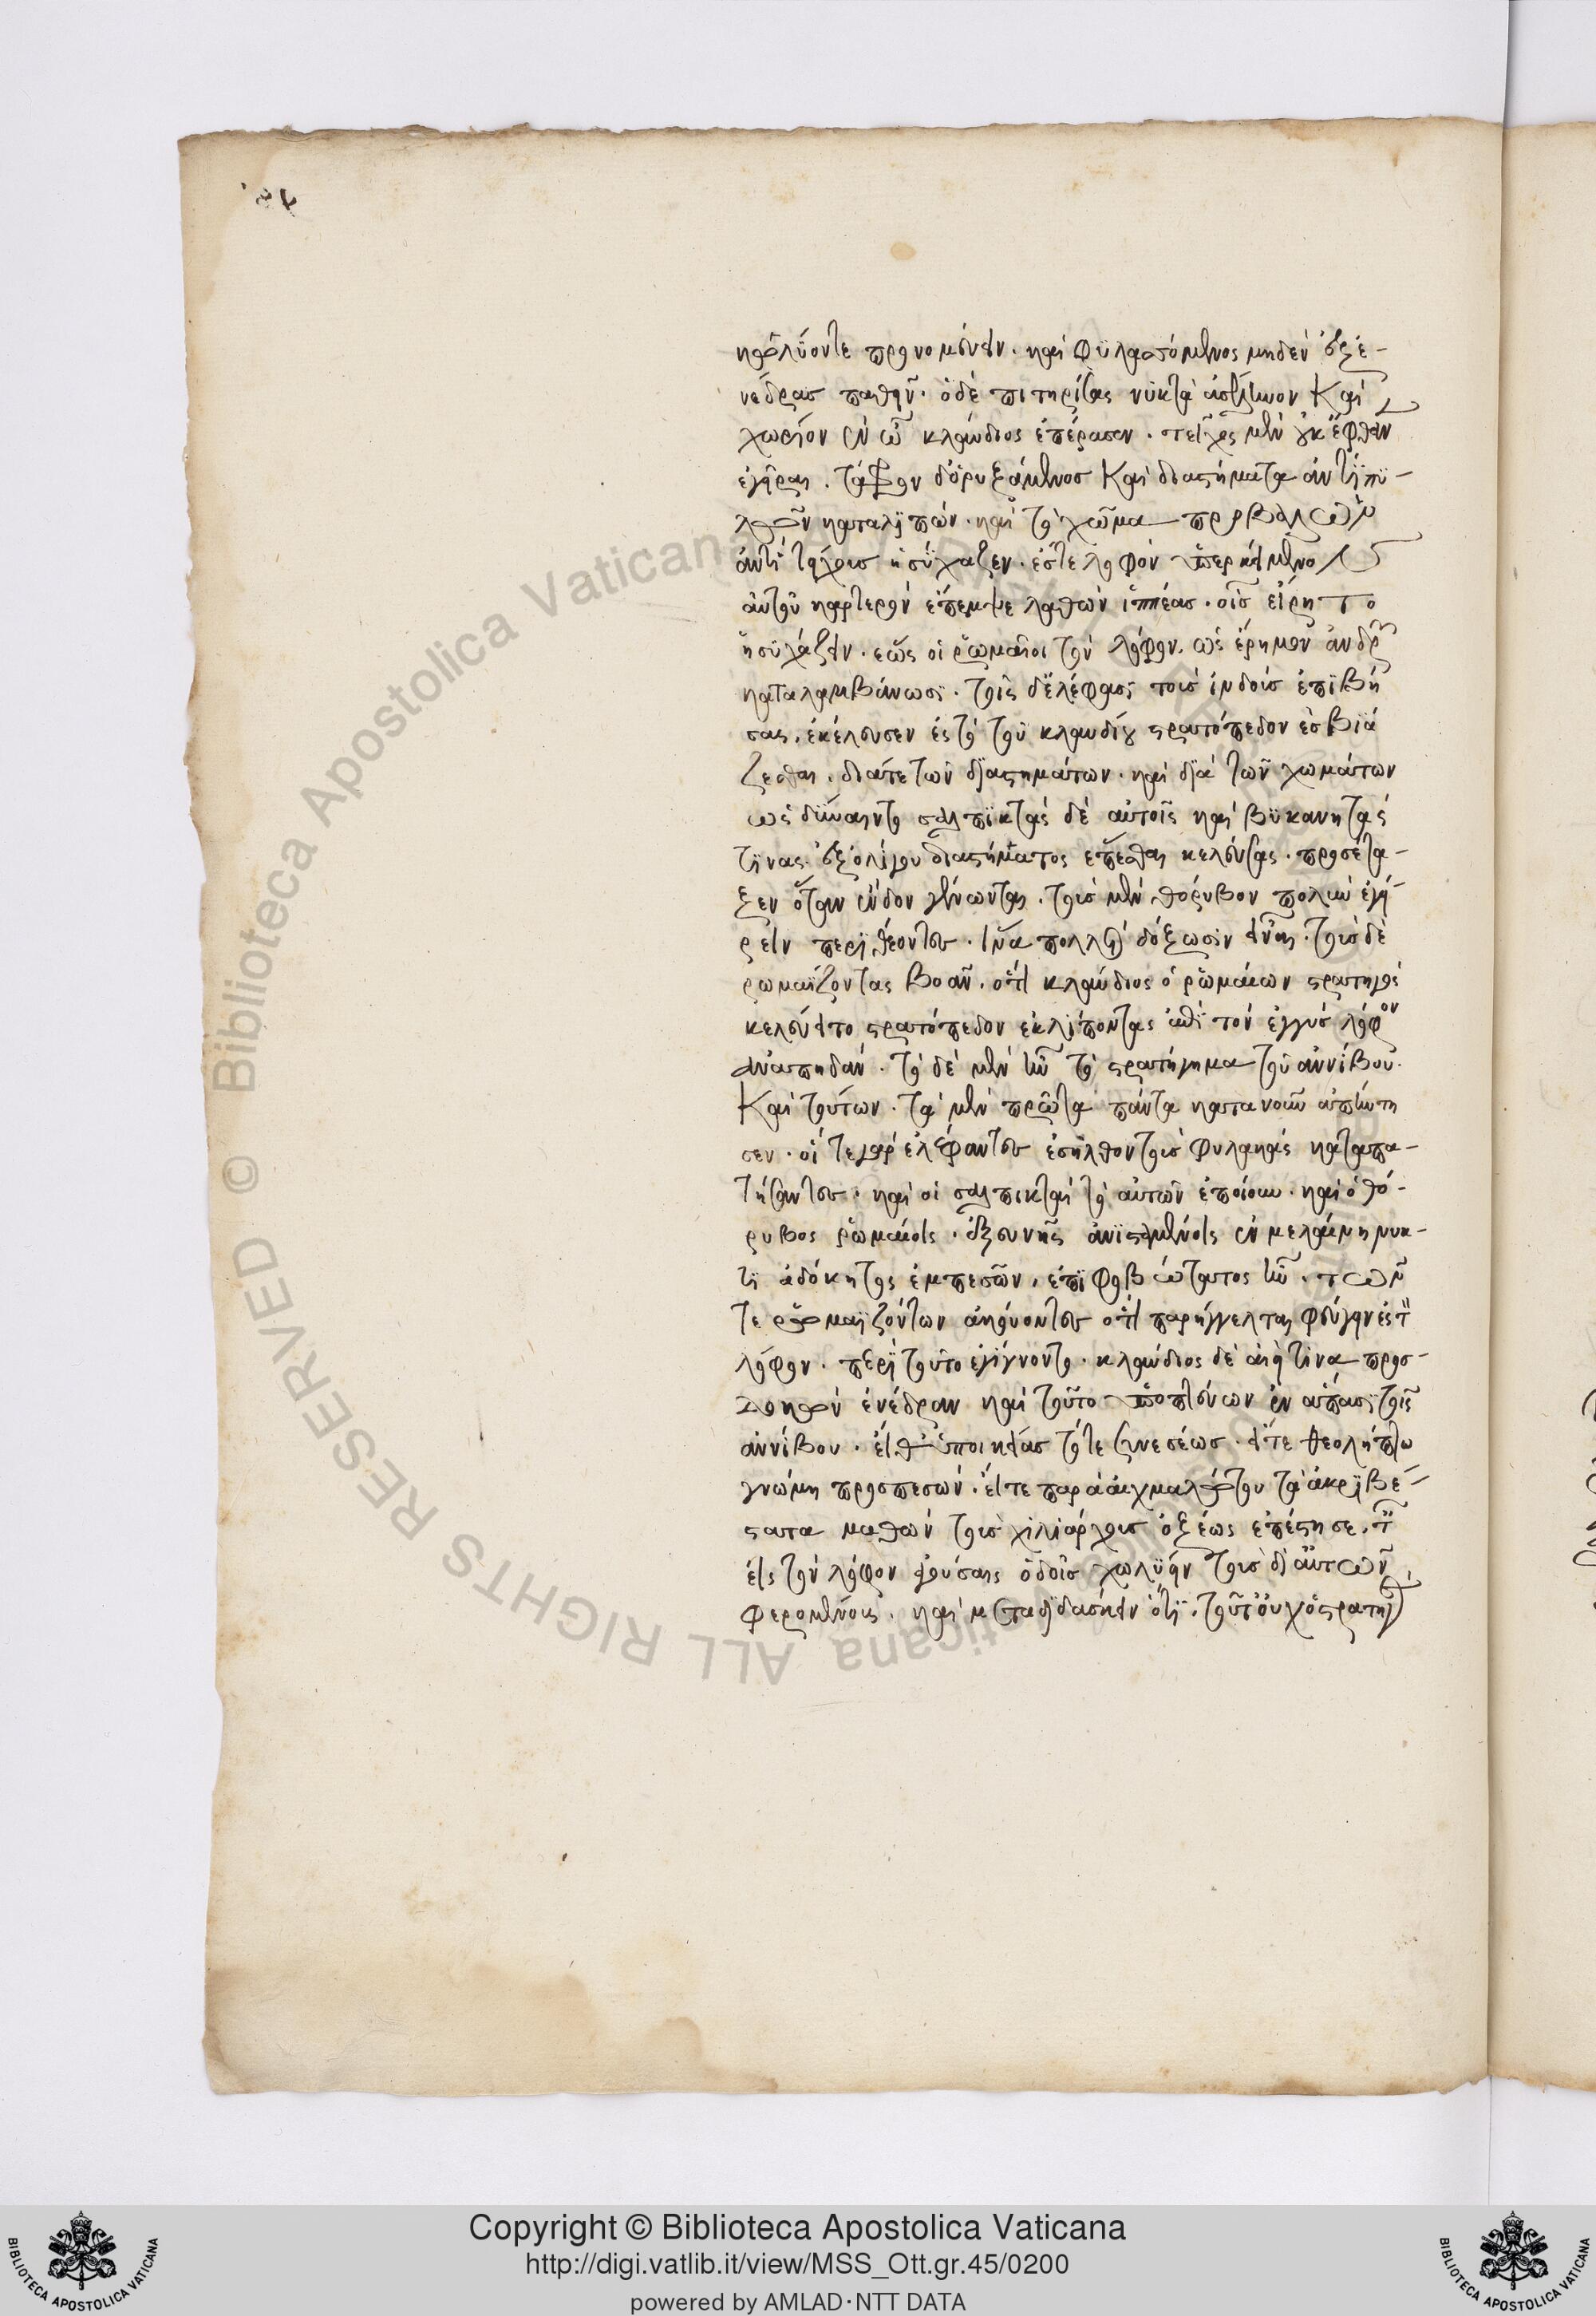 κωλύοντε προνομεύειν. καὶ φυλασσόμενος μηδὲν ἐξ ἐ-
νέδρας παθεῖν. ὁ δὲ ἐπιτηρήσας νύκτα ἀσέληνον καὶ
χωρίον ἐν ᾧ κλαύδιος ἑσπέρας ἦν. τεῖχος μὲν οὐκ ἔφθαν
ἐγεῖραι. τάφρον δ' ὀρυξάμενος καὶ διαστήματα ἀντὶ πυ-
λῶν καταλιπών. καὶ τὸ χῶμα προβαλὼν
ἀντὶ τείχους ἡσύχαζεν. ἔς τε λόφον ὑπερκείμενον
αὐτοῦ καρτερὸν ἔπεμψε λαθὼν ἱππέας. οἷς εἴρητο
ἡσυχάζειν. ἕως οἱ ῥωμαῖοι τὸν λόφον. ὡς ἔρημον ἀνδρῶν
καταλαμβάνωσι. τοῖς δ' ἐλέφασι τοὺς ἰνδοὺς ἐπιβή
σας. ἐκέλευσεν ἐς τὸ τοῦ κλαυδίου στρατόπεδον ἐσβιά
ζεσθαι. διά τε τῶν διαστημάτων. καὶ διὰ τῶν χωμάτων
ὡς δύναιντο σαλπικτὰς δὲ αὐτοῖς καὶ βυκανητὰς
τινας. ἐξ ὀλίγου διαστήματος ἕπεσθαι κελεύσας. προσέτα-
ξεν ὅταν ἔνδον γένωνται. τοὺς μὲν θόρυβον πολὺν ἐγεί-
ρειν περιθέοντας. ἵνα πολλοὶ δόξωσιν εἶναι. τοὺς δὲ
ῥωμαΐζοντας βοᾶν. ὅτι κλαύδιος ὁ ῥωμαίων στρατηγὸς
κελεύει τὸ στρατόπεδον ἐκλιπόντας ἐπὶ τὸν ἐγγὺς λόφον
ἀναπηδᾶν. τὸ δὲ μὲν ἦν τὸ στρατήγημα τοῦ ἀννίβου.
καὶ τούτων. τὰ μὲν πρῶτα πάντα κατὰ νοῦν ἀπήντη
σεν. οἵ τε γὰρ ἐλέφαντες ἐσῆλθον τοὺς φύλακας καταπα-
τήσαντες. καὶ οἱ σαλπικταὶ τὸ αὐτῶν ἐποίουν. καὶ ὁ θό-
ρυβος ῥωμαίοις. ἐξ εὐνῆς ἀνισταμένοις ἐν μελαίνῃ νυκ-
τὶ ἀδόκητος ἐμπεσών. ἐπιφοβώτατος ἦν. τῶν
τε ῥωμαϊζόντων ἀκούοντες ὅτι παρήγγελται φεύγειν ἐς τὸν
λόφον. περὶ τοῦτο ἐγίγνοντο. κλαύδιος δὲ αἰεί τινα προσ-
δοκῶν ἐνέδραν καὶ τοῦτο ὑποπτεύων ἐν ἅπασι τοῖς
ἀννίβου. εἴθ' ὑπ' οἰκείας τότε συνέσεως. εἴτε θεολήπτῳ
γνώμῃ προσπεσών. εἴτε παρὰ αἰχμαλώτου τὰ ἀκριβέ-
στατα μαθὼν τοὺς χιλιάρχους ὀξέως ἐπέστησε. ταῖς
εἰς τὸν λόφον ἀγούσαις ὁδοῖς κωλύειν τοὺς δι' αὐτῶν
φερομένους. καὶ μεταδιδάσκειν ὅτι. τοῦτ' οὐχ ὁ στρατηγὸς